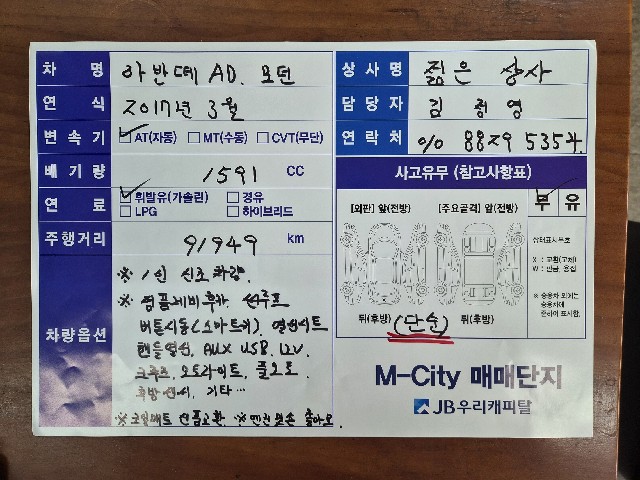 차 명 아반떼 AD. 모던
연 식 2017년 3월
변 속 기 ✓AT(자동) □MT(수동) □CVT(무단)
배 기 량 1591 CC
연 료 ✓휘발유(가솔린) □경유
□LPG □하이브리드
주행거리 91949 km
차량옵션
※ 1인 신조 차량.
※ 명품네비 후카 썬루프
버튼시동(스마트키). 열선시트
핸들열선, AUX USB. 12V.
크루즈, 오토라이트, 풀오토.
후방센서, 기타...
※ 코일매트 신품교환. ※ 엔진 밋숀 좋아요.
상 사 명 젊은 상사
담 당 자 김 정 영
연 락 처 010 8829 5354.
사고유무 (참고사항표)
[외판] 앞(전방) [주요골격] 앞(전방)
무 유
상태표시부호
X : 교환(교체)
W : 판금, 용접
※ 승용차 외에는
승용차에
준하여 표시함.
뒤(후방) (단순) 뒤(후방)
M-City 매매단지
JB우리캐피탈